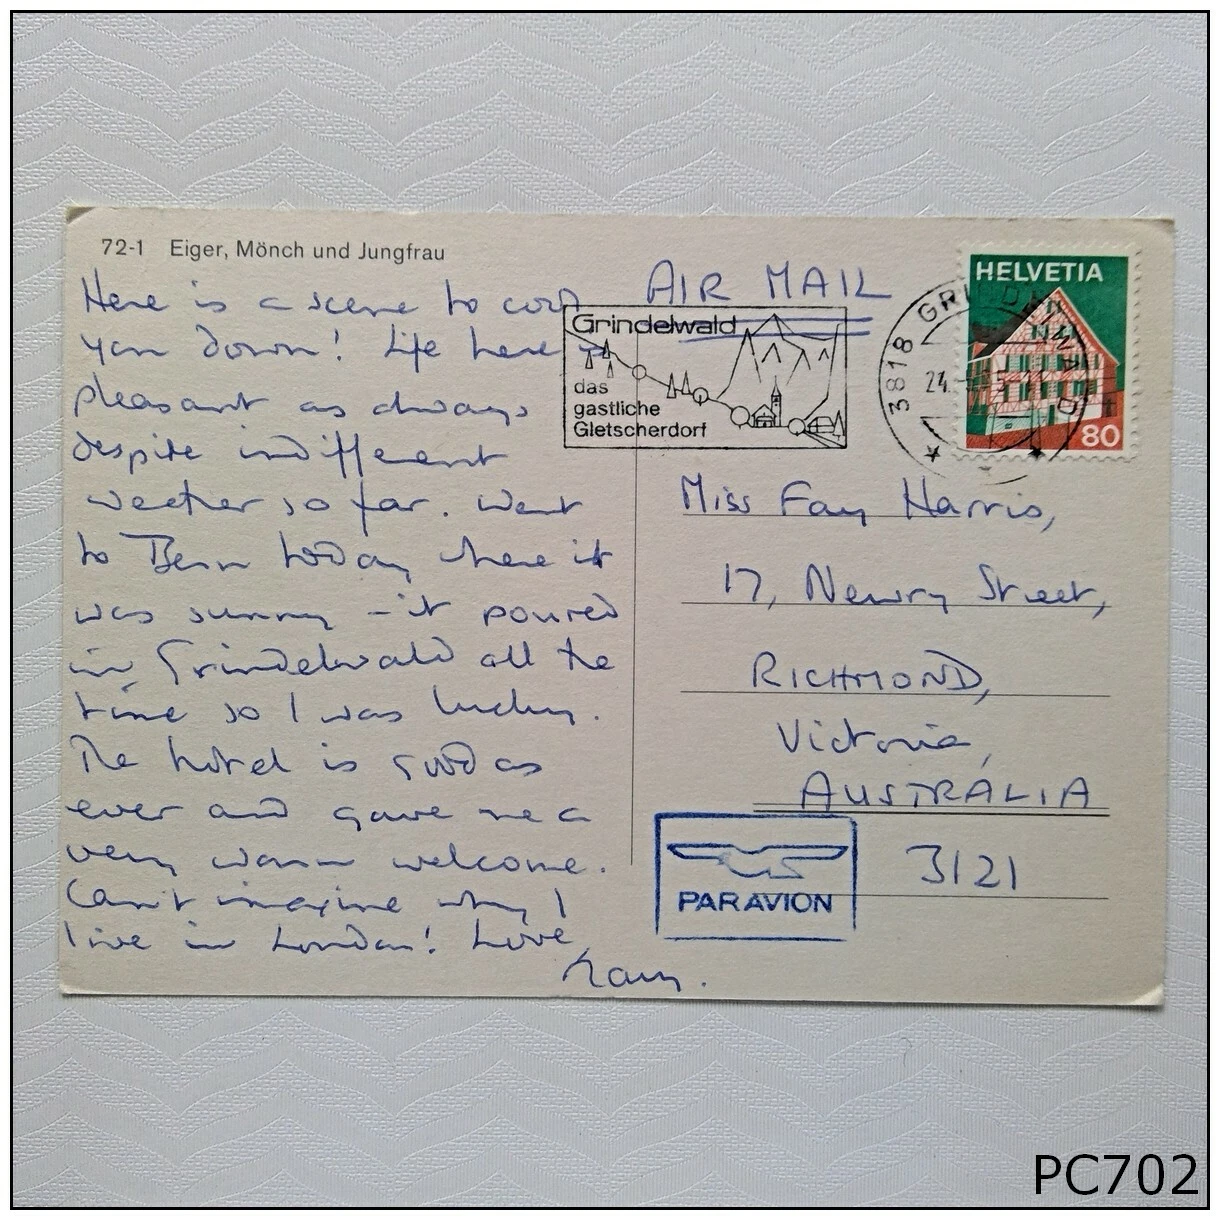 72-1 Eiger, Mönch und Jungfrau
Here is a scene to cool
you down! Life here is
pleasant as always
despite indifferent
weather so far. Went
to Bern today where it
was sunny - it poured
in Grindelwald all the
time so I was lucky.
The hotel is good as
ever and gave me a
very warm welcome.
Can't imagine why I
live in London! Love,
AIR MAIL
Grindelwald
das
gastliche
Gletscherdorf
3818 GRINDELWALD
24.
HELVETIA
80
Miss Fay Harris,
17, Newry Street,
RICHMOND,
Victoria,
AUSTRALIA
3121
PAR AVION
PC702